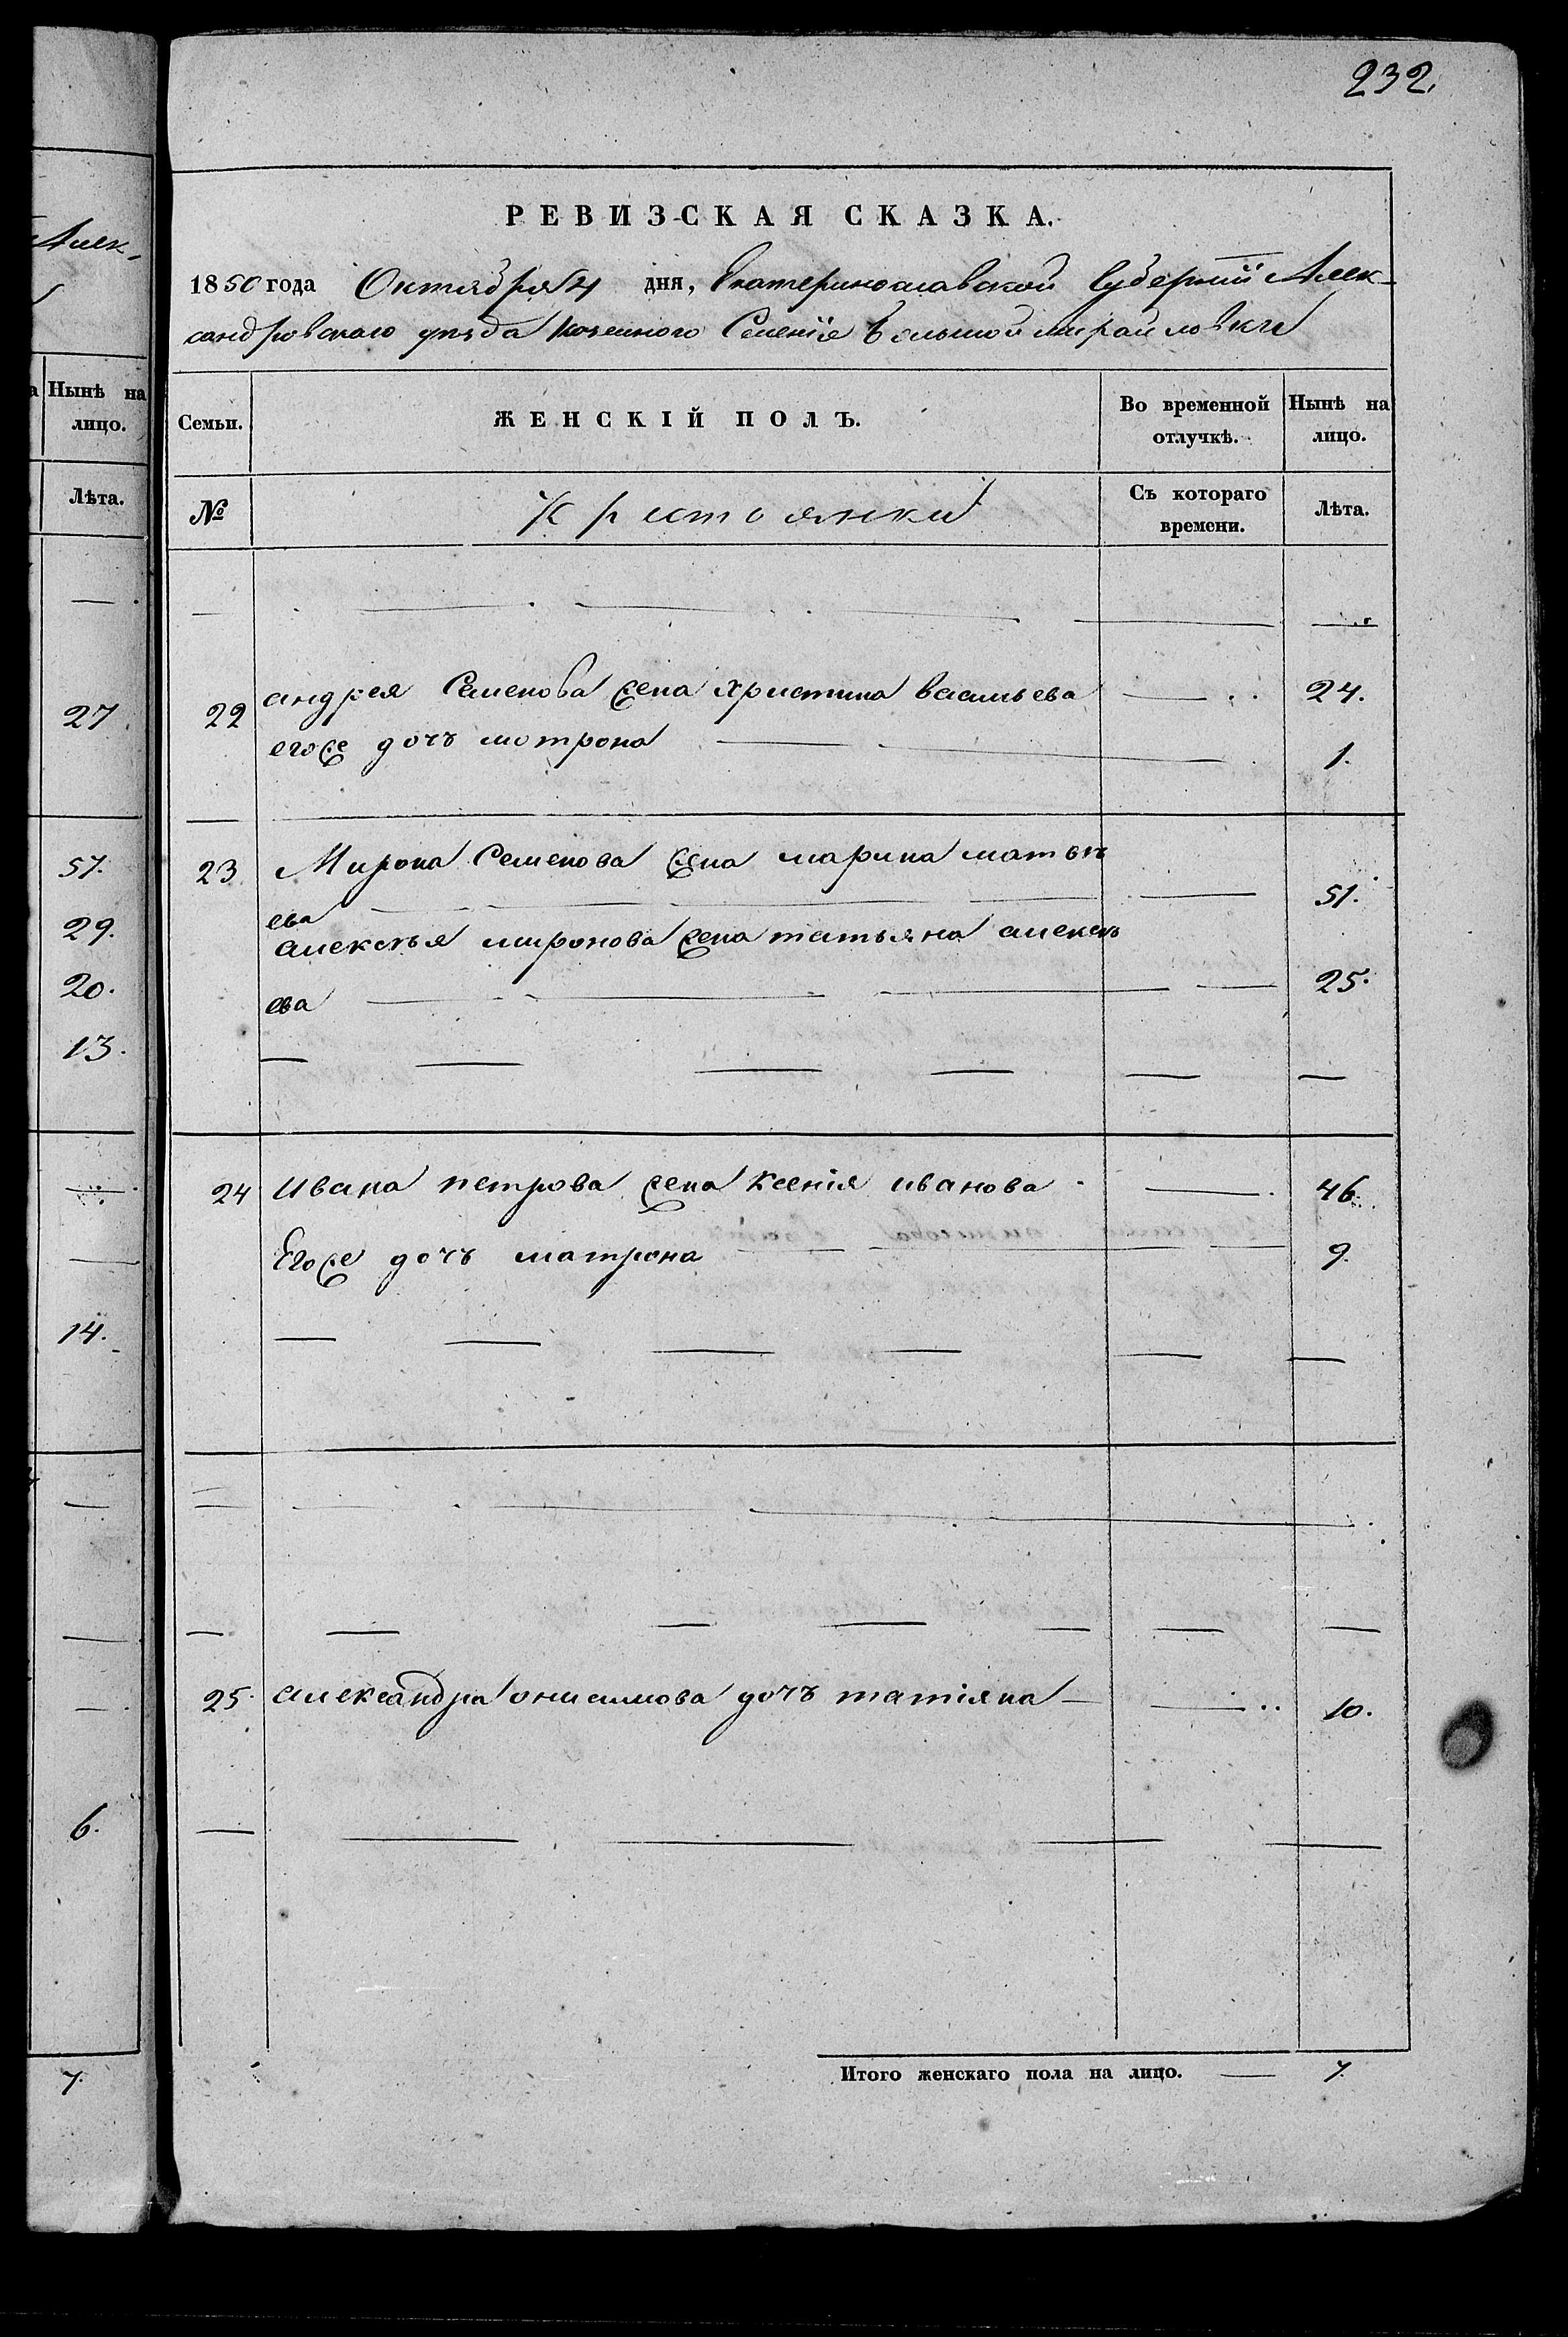 232.
Алек-
РЕВИЗСКАЯ СКАЗКА.
1850 года Октября 4 дня, Екатеринославской Губернiи Алек-
сандровскаго уѣзда казенного Селенiя Большой михайловки
а Нынѣ на лицо.
Лѣта.
27.
57.
29.
20.
13.
14.
6.
7.
Семьи. ЖЕНСКIЙ ПОЛЪ. Во временной отлучкѣ. Нынѣ на лицо.
№ Крестоянки Съ котораго времени. Лѣта.
22 андрея Семенова жена христина васильева 24.
егоже дочъ мотрона 1.
23 Мирона Семенова жена марина матвѣ
ева 51.
алексѣя миронова жена татьяна алексѣ
ева 25.
24 ивана петрова жена ксенiя иванова 46.
Егоже дочъ матрона 9.
25. александра онисимова дочъ татiяна 10.
Итого женскаго пола на лицо. 7.